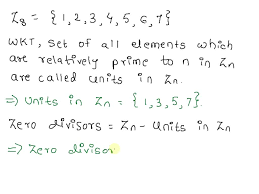 Z₈ = { 1, 2, 3, 4, 5, 6, 7 }
WKT, set of all elements which
are relatively prime to n in Zn
are called units in Zn.
=> units in Zn = { 1, 3, 5, 7 }.
Zero divisors = Zn - Units in Zn
=> Zero divisor